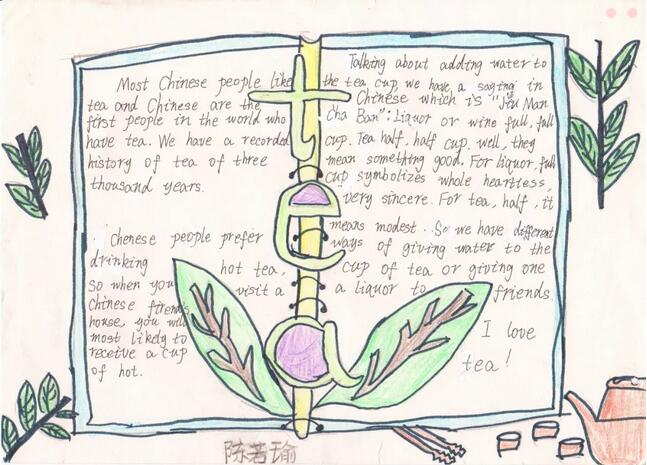 Most Chinese people like
tea and Chinese are the
first people in the world who
have tea. We have a recorded
history of tea of three
thousand years.
Chenese people prefer
drinking hot tea,
so when you visit a
Chinese firends
house, you will
most likely to
receive a cup
of hot.
tea
Talking about adding water to
the tea cup, we have a saying in
Chinese which is "Jiu Man
Cha Ban": Liquor or wine full, full
cup. Tea half, half cup. well, they
mean something good. For liquor, full
cup symbolizes whole heartless,
very sincere. For tea, half, it
means modest. So we have different
ways of giving water to the
cup of tea or giving one
a liquor to friends.
I love
tea!
陈若瑜